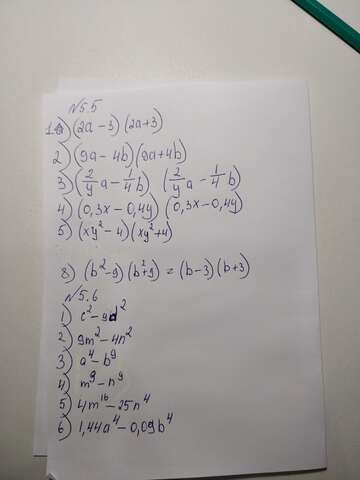 №5.5
1) (2a-3) (2a+3)
2) (9a-4b)(9a+4b)
3) (2/y a - 1/4 b) (2/y a - 1/4 b)
4) (0,3x-0,4y) (0,3x-0,4y)
5) (xy²-4)(xy²+4)
8) (b²-9)(b²+9) = (b-3)(b+3)
№5.6
1) c²-9d²
2) 9m²-4n²
3) a⁴-b⁹
4) m⁹-n⁹
5) 4m¹⁶-25n⁴
6) 1,44a⁴-0,09b⁴